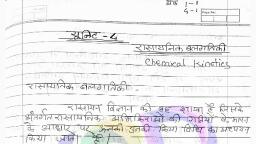 यूनिट - 4
रासायनिक बलगतिकी
Chemical Kinetics
रासायनिक बलगतिकी
रसायन विज्ञान की वह शाखा है जिसके
अंतर्गत रासायनिक अभिक्रियाओं की
के आधार पर उनकी क्रिया विधि का अध्ययन
किया जाता है।